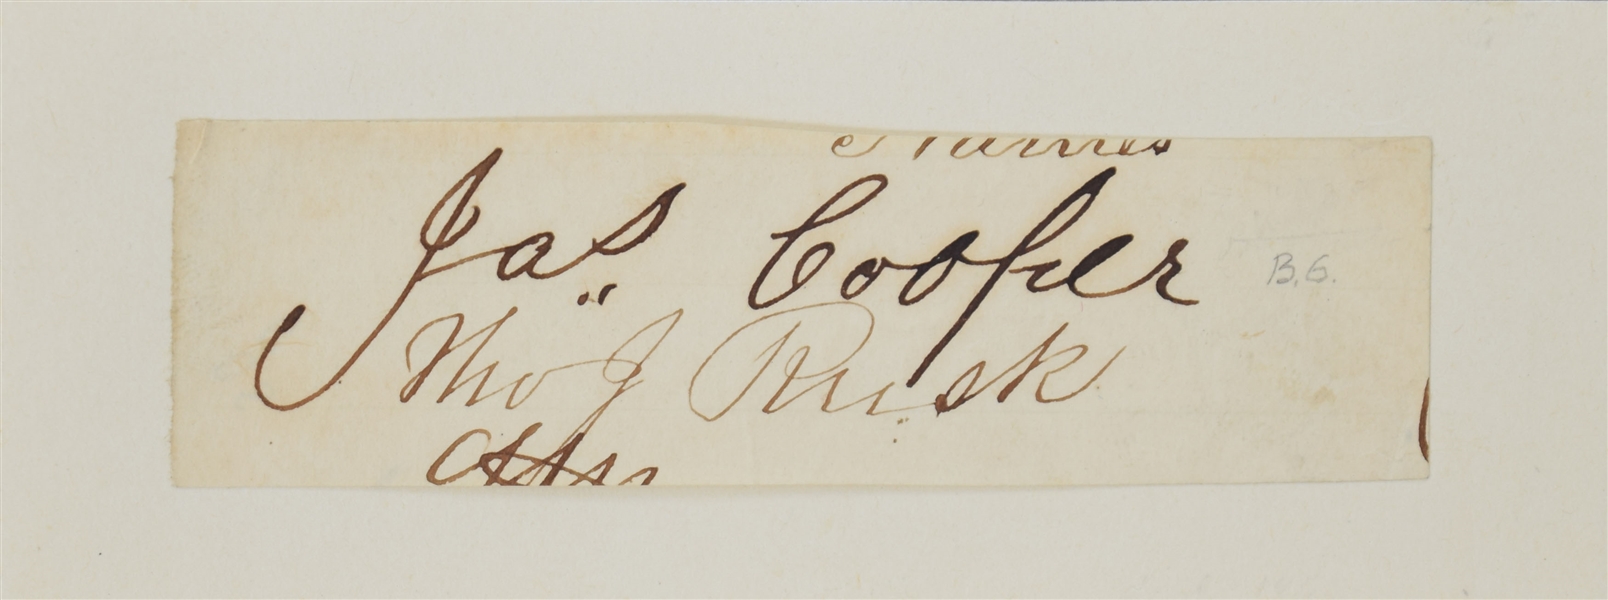 Jas. Cooper
B.G.
Tho J Rusk